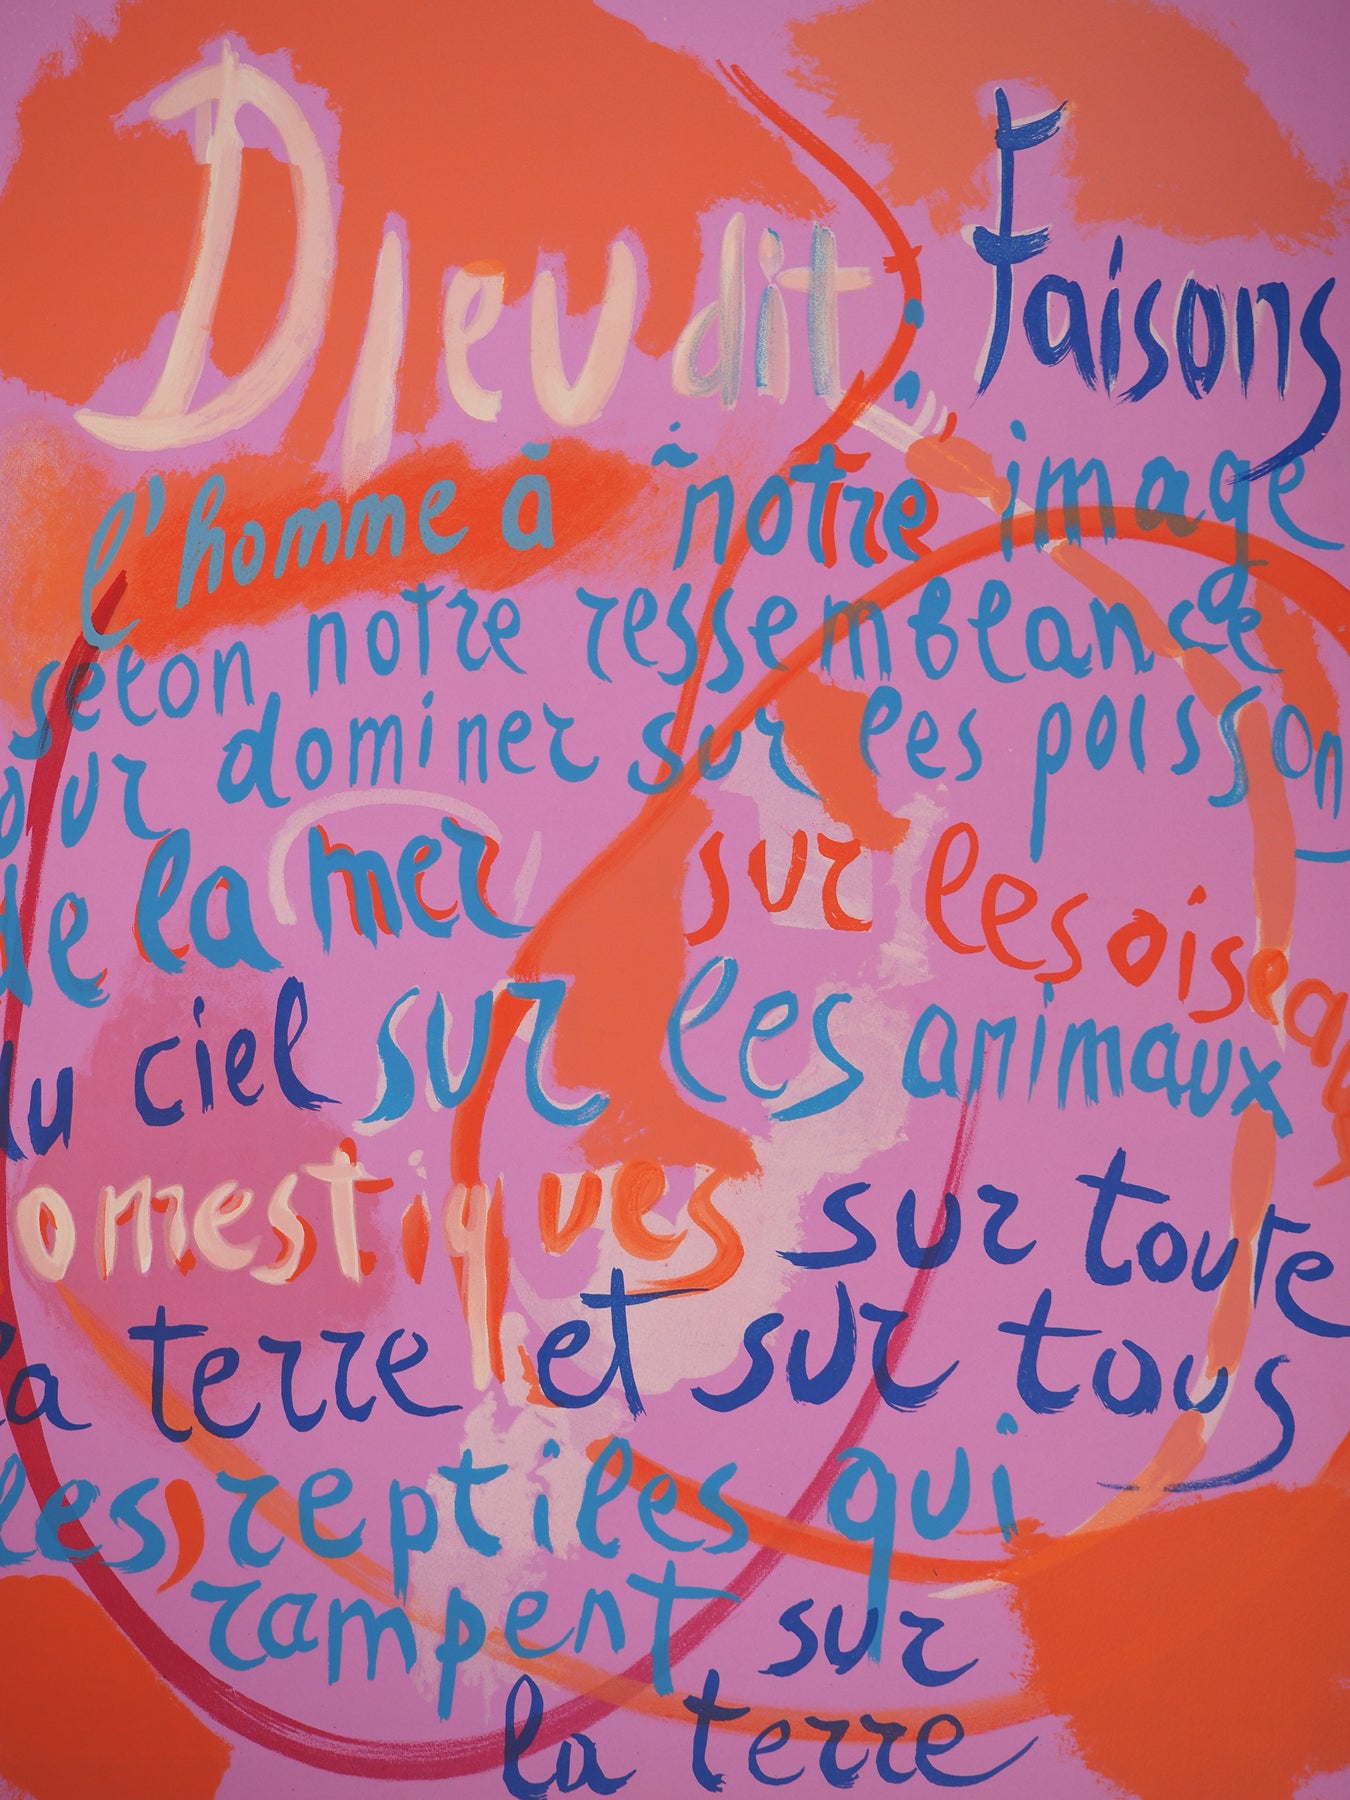 Dieu dit : Faisons
l'homme à notre image
selon notre ressemblance
our dominer sur les poisson
de la mer sur les oiseaux
du ciel sur les animaux
omestiques sur toute
la terre et sur tous
les reptiles qui
rampent sur
la terre